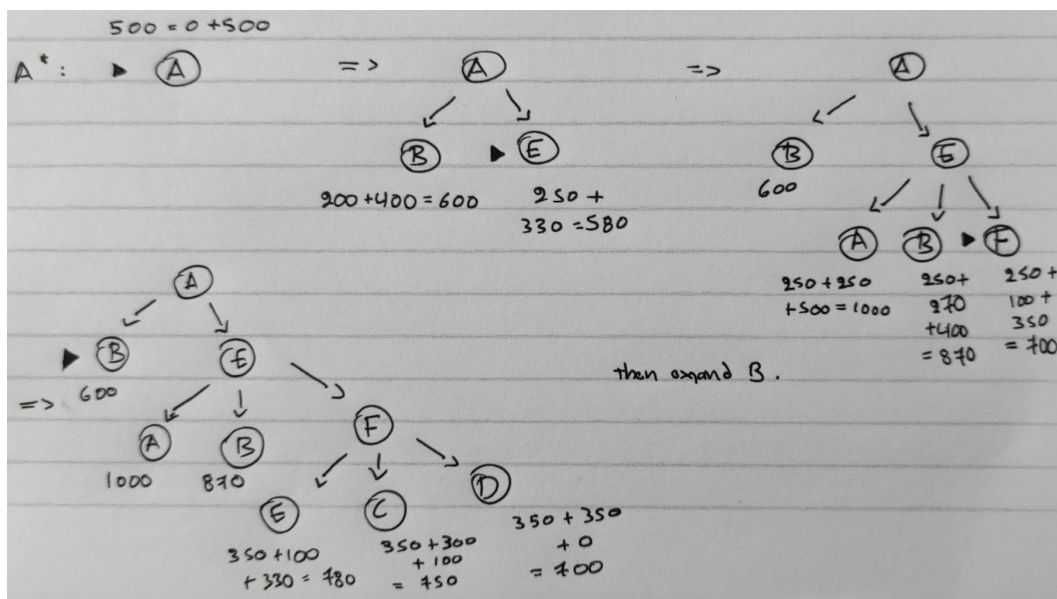 500 = 0 + 500
A* : ▶ A => A => A
B ▶ E
200 + 400 = 600
250 +
330 = 580
B E
600
A B ▶ F
250 + 250
+ 500 = 1000
250 +
270
+ 400
= 870
250 +
100 +
350
= 700
A
▶ B E
600
=>
then expand B.
A B F
1000 870
E C D
350 + 100
+ 330 = 780
350 + 300
+ 100
= 750
350 + 350
+ 0
= 700